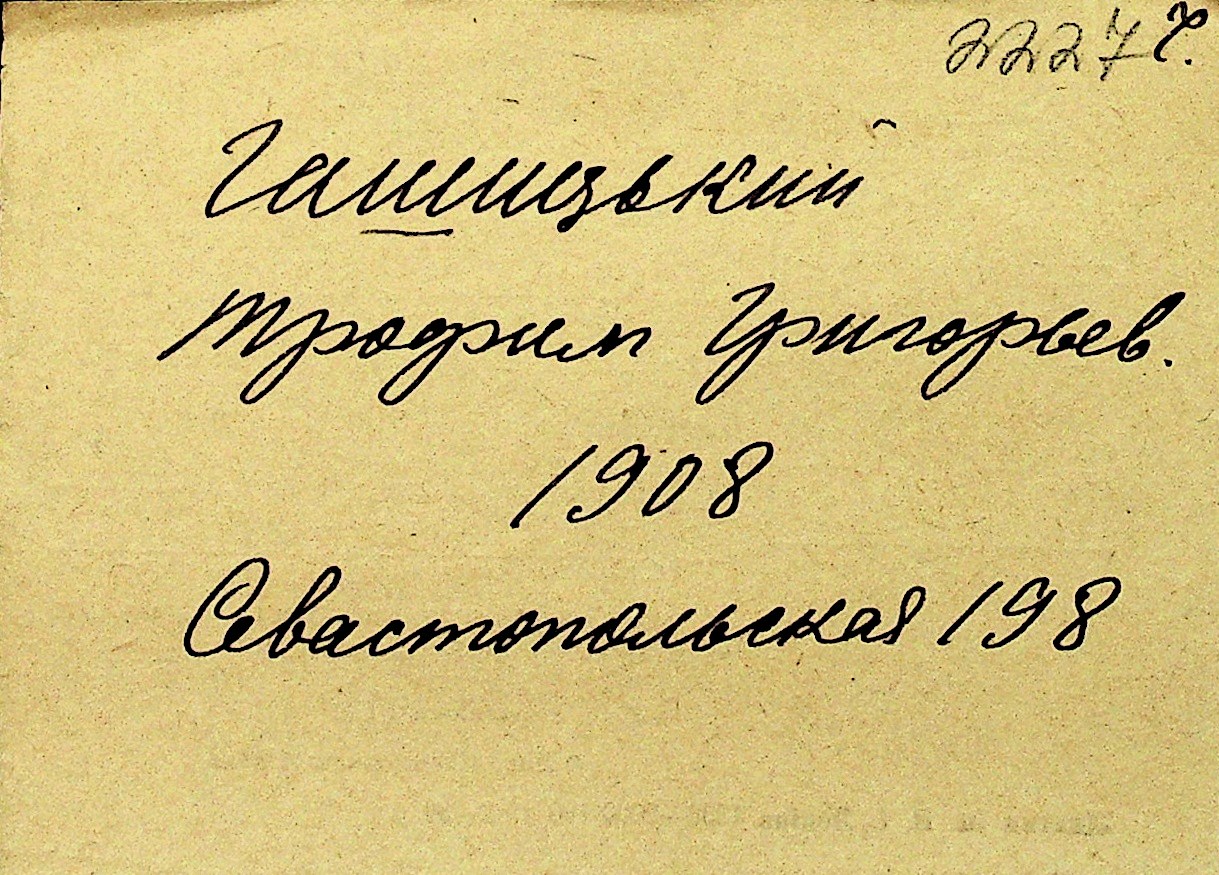 2227 Ч.
Гашицький
Трофим Григорьев.
1908
Севастопольская 198